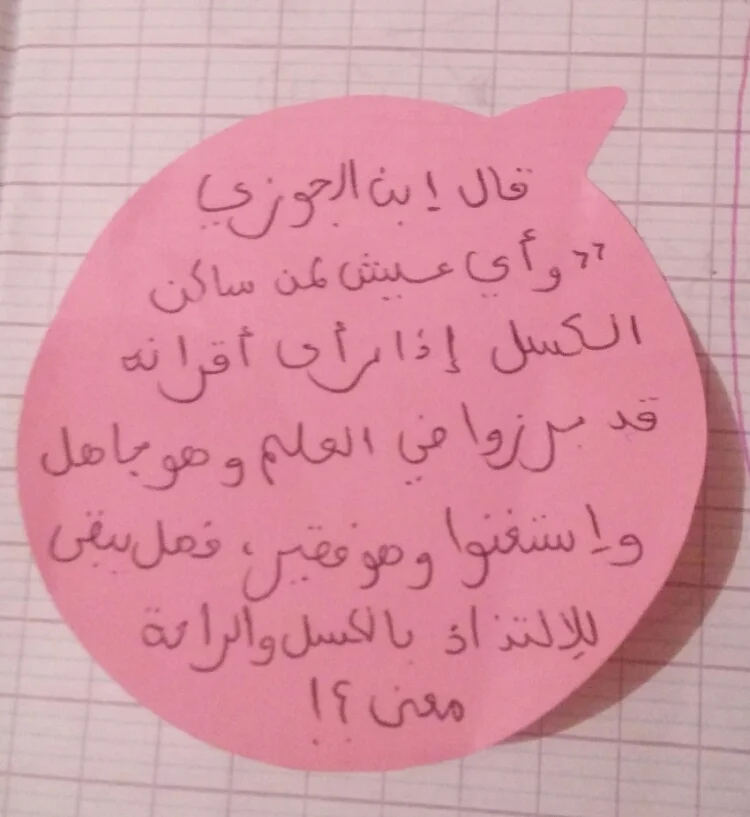 قال إبن الجوزي
"وأي عيش لمن ساكن
الكسل إذا رأى أقرانه
قد برزوا في العلم وهو جاهل
وإستغنوا وهو فقير، فهل يبقى
للإلتذاذ بالكسل والراحة
معنى ؟!